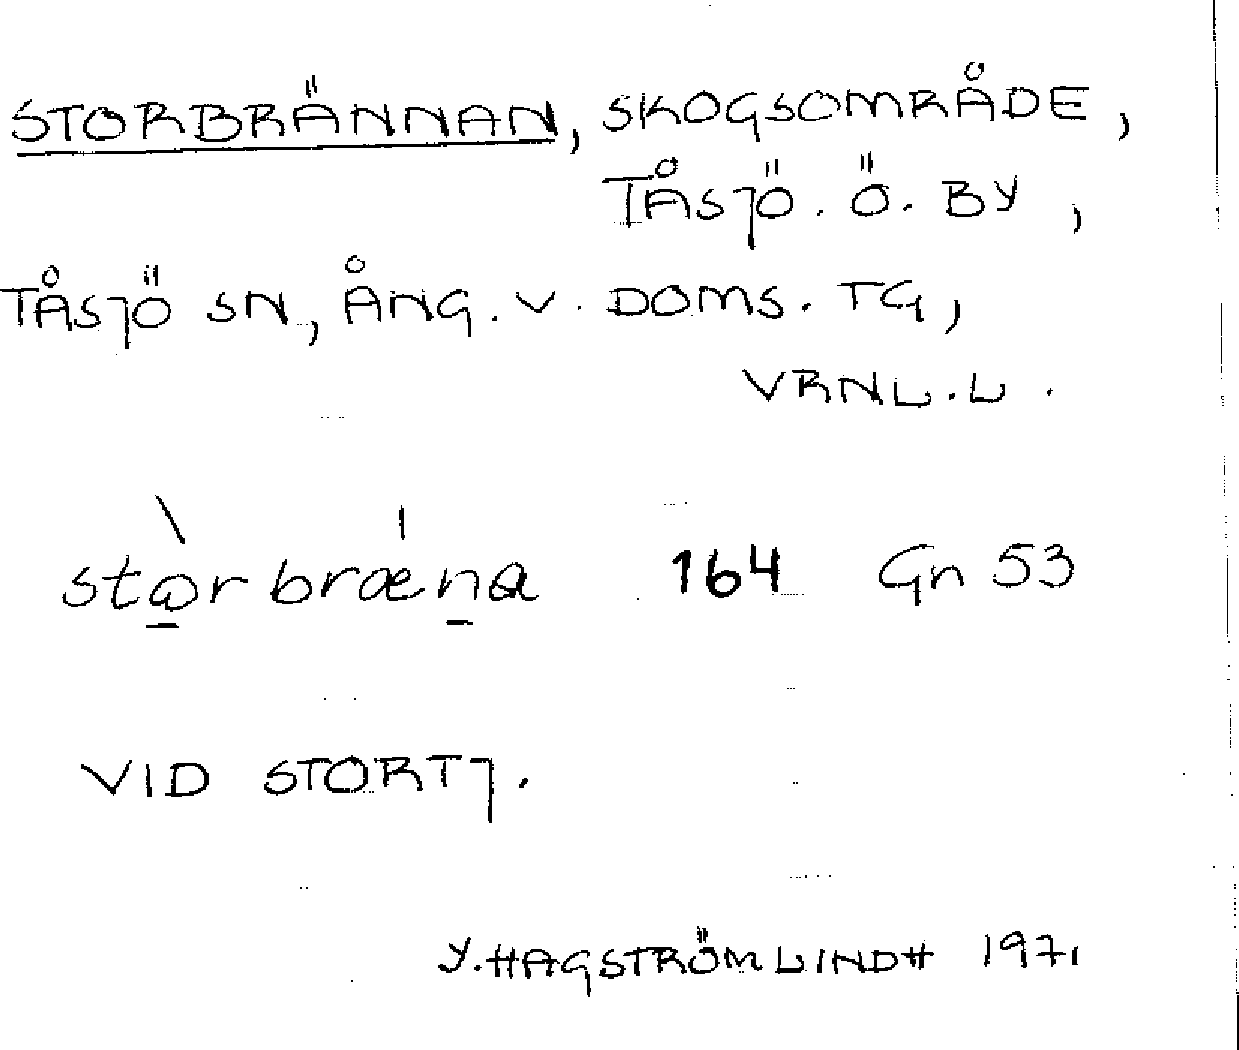 STORBRÄNNAN, SKOGSOMRÅDE,
TÅSJÖ. Ö. BY,
TÅSJÖ SN, ÅNG. V. DOMS. TG,
VRNL. L.
164 Gn 53
VID STORTJ.
Y. HAGSTRÖM LINDH 1971